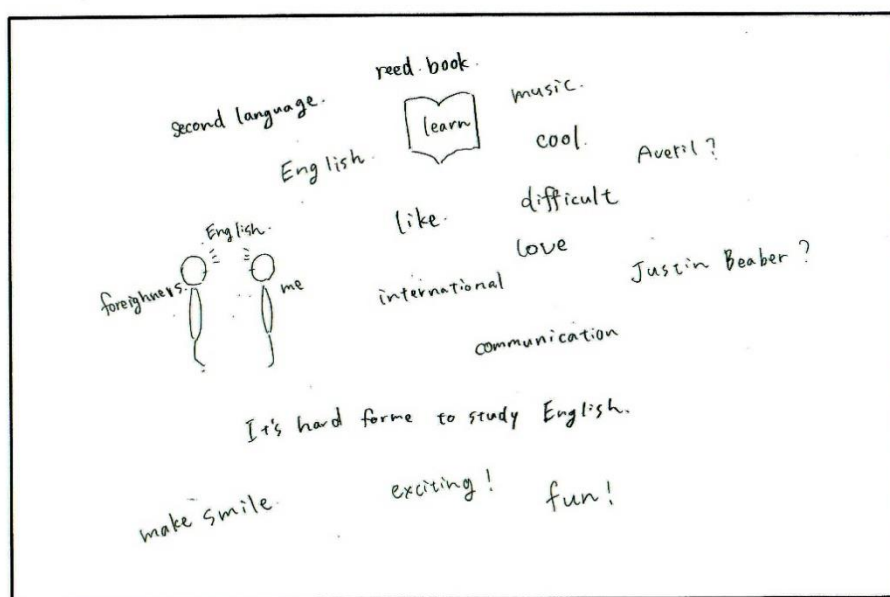 reed. book.
second language.
music.
learn
English.
cool.
Averil?
like.
difficult
English.
love
foreighners.
me
international
Justin Beaber?
communication
It's hard forme to study English.
make smile.
exciting!
fun!